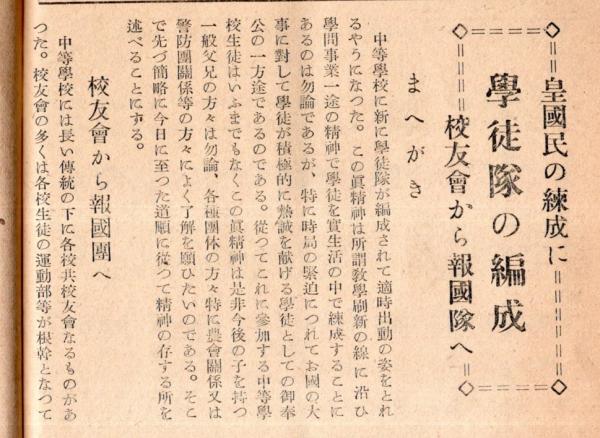 皇國民の練成に
學徒隊の編成
校友會から報國隊へ
まへがき
中等學校に新に學徒隊が編成されて適時出動の姿をとれ
るやうになつた。この眞精神は所謂敎學刷新の線に沿ひ
學問事業一途の精神で學徒を實生活の中で練成することに
あるのは勿論であるが、特に時局の緊迫につれてお國の大
事に對して學徒が積極的に熱誠を献げる學徒としての御奉
公の一方途であるのである。從つてこれに參加する中等學
校生徒はいふまでもなくこの眞精神は是非今後の子を持つ
一般父兄の方々は勿論、各種團体の方々特に農會關係又は
警防團關係等の方々によく了解を願ひたいのである。そこ
で先づ簡略に今日に至つた道順に從つて精神の存する所を
述べることにする。
校友會から報國團へ
中等學校には長い傳統の下に各校共校友會なるものがあ
つた。校友會の多くは各校生徒の運動部等が根幹となつて